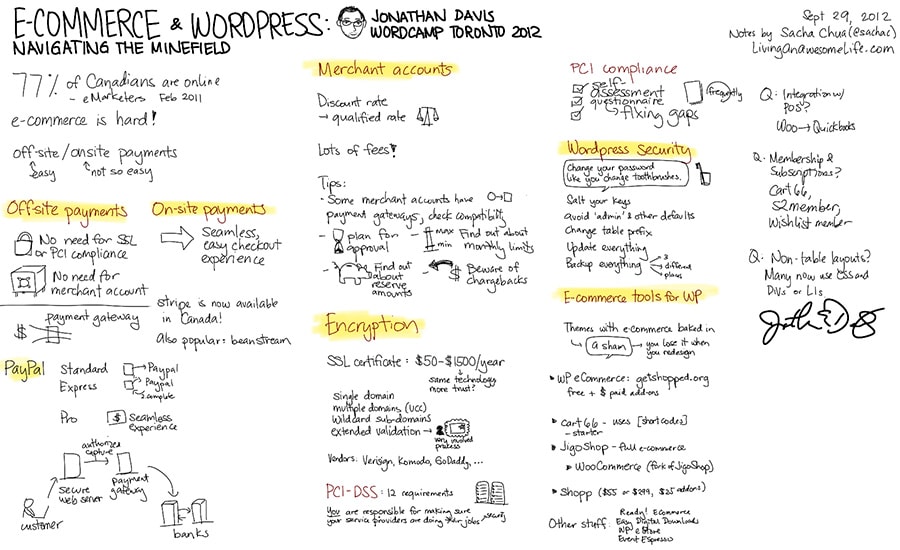 E-COMMERCE & WORDPRESS:
NAVIGATING THE MINEFIELD
JONATHAN DAVIS
WORDCAMP TORONTO 2012
Sept 29, 2012
Notes by Sacha Chua (@sachac)
LivingAnAwesomeLife.com
77% of Canadians are online
- eMarketers Feb 2011
e-commerce is hard!
off-site/onsite payments
easy
not so easy
Off-site payments
No need for SSL
or PCI compliance
No need for
merchant account
payment gateway
$
On-site payments
Seamless,
easy checkout
experience
stripe is now available
in Canada!
Also popular: beanstream
PayPal
Standard
Paypal
Express
Paypal
complete
Pro
$
Seamless
experience
authorize
capture
secure
web server
payment
gateway
customer
banks
Merchant accounts
Discount rate
→ qualified rate
Lots of fees!
Tips:
- Some merchant accounts have
payment gateways, check compatibility
- plan for
approval
- max
min
Find out about
monthly limits
- Find out
about
reserve
amounts
- $
Beware of
chargebacks
Encryption
SSL certificate: $50-$1500/year
same technology
more trust?
single domain
multiple domains (UCC)
wildcard sub-domains
extended validation →
very involved
process
Vendors: Verisign, Komodo, GoDaddy, ...
PCI-DSS: 12 requirements
You are responsible for making sure
your service providers are doing their jobs
security
PCI compliance
self-
assessment
questionnaire
frequently
fixing gaps
Wordpress Security
Change your password
like you change toothbrushes.
Salt your keys
avoid 'admin' & other defaults
Change table prefix
Update everything
Backup everything
3
different
places
E-commerce tools for WP
Themes with e-commerce baked in
a sham
→ you lose it when
you redesign
▸ WP eCommerce: getshopped.org
free + $ paid add-ons
▸ Cart66 - uses [shortcodes]
- starter
▸ JigoShop - full e-commerce
▸ WooCommerce (fork of JigoShop)
▸ Shopp ($55 or $299, $25 addons)
Other stuff:
Ready! Ecommerce
Easy Digital Downloads
WP eStore
Event Espresso
Q: Integration w/
POS?
Woo → Quickbooks
Q: Membership &
Subscriptions?
Cart 66,
S2member,
Wishlist member
Q: Non-table layouts?
Many now use CSS and
DIVs or LIs